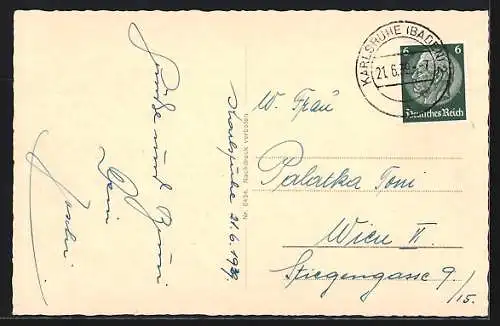 KARLSRUHE (BADEN)
21.6.39
6 6
Deutsches Reich
Karlsruhe 21.6.1939.
Grüße und Bussi
Dein
Nr. 6434. Nachdruck verboten
W. Frau
Palatka Toni
Wien VI.
Stiegengasse 9/15.